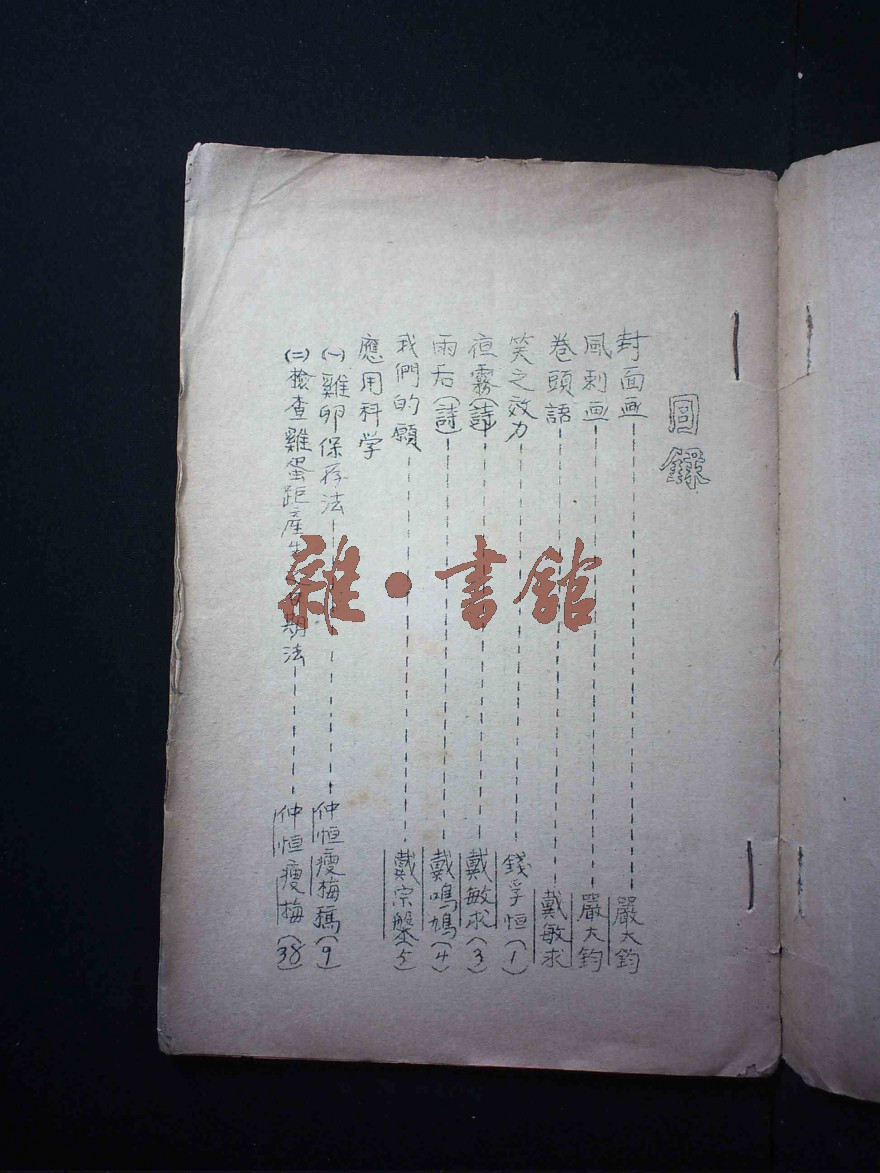 目錄
封面画 嚴大鈞
風刺画 嚴大鈞
卷頭語 戴敏求
笑之效力 錢孚恒 (1)
夜霧(詩) 戴敏求 (3)
雨后(詩) 戴鳴鳩 (4)
我們的願 戴宗盤 (5)
應用科学
(一)雞卵保存法 仲恒 瘦梅 稿 (9)
(二)檢查雞蛋距產生 期法 仲恒 瘦梅 (38)
雜・書館